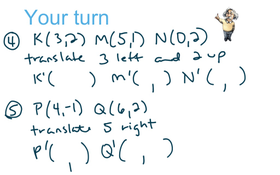 Your turn
④ K(3,2) M(5,1) N(0,2)
translate 3 left and 2 up
K'( ) M'( , ) N'( , )
⑤ P(4,-1) Q(6,2)
translate 5 right
P'( , ) Q'( , )